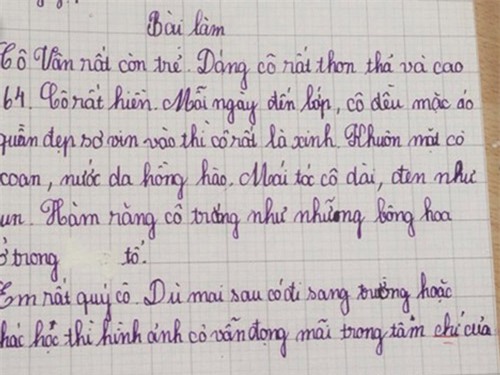 Bài làm
Cô Vân rất còn trẻ. Dáng cô rất thon thả và cao
64. Cô rất hiền. Mỗi ngày đến lớp, cô đều mặc áo
quần đẹp sơ vin vào thì cô rất là xinh. Khuôn mặt cô
xoan, nước da hồng hào. Mái tóc cô dài, đen như
un. Hàm răng cô trắng như những bông hoa
ở trong tố.
Em rất quý cô. Dù mai sau có đi sang trường hoặc
hác học thì hình ảnh cô vẫn đọng mãi trong tâm chí của